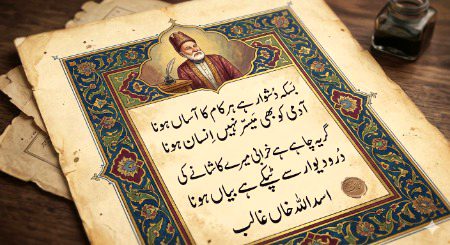 بسکہ دُشوار ہے ہر کام کا آساں ہونا
آدمی کو بھی میّسر نہیں اِنساں ہونا
گریہ چاہے ہے خرابی میرے کاشانے کی
در و دیوار سے ٹپکے ہے بیاں ہونا
اسد اللہ خاں غالب